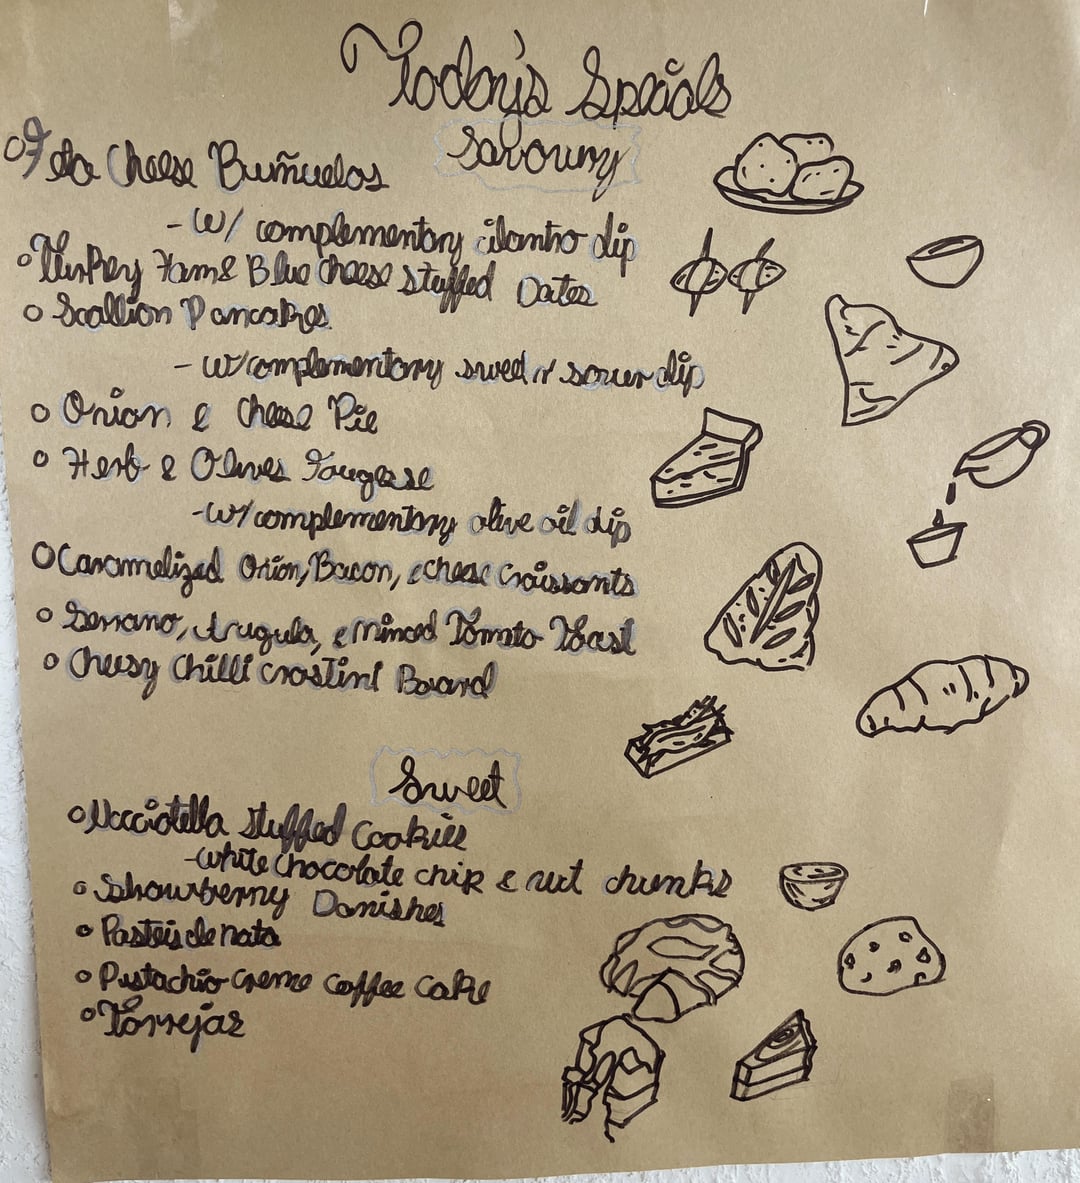 Today's Specials
Savoury
Feta Cheese Buñuelos
- W/ complementary cilantro dip
Turkey Ham & Blue cheese stuffed Dates
Scallion Pancakes
- w/ complementary sweet n' sour dip
Onion & Cheese Pie
Herb & Olives Fougasse
- w/ complementary olive oil dip
Caramelized Onion, Bacon, & cheese Croissants
Serrano, Arugula, & minced Tomato Toast
Cheesy Chilli Crostini Board
Sweet
Nocciotella stuffed Cookies
- white chocolate chip & nut chunks
Strawberry Danishes
Pasteis de nata
Pistachio creme coffee cake
Torrejas